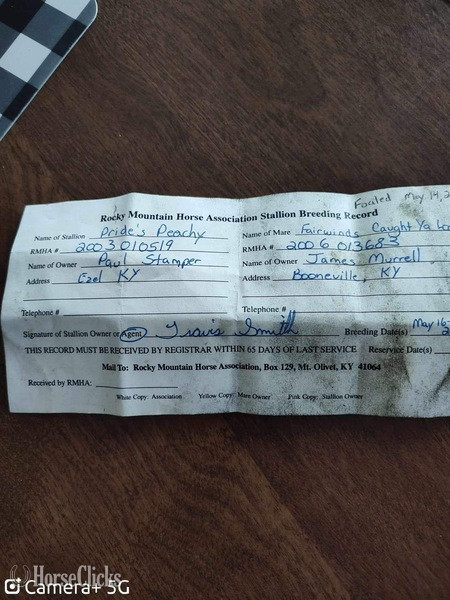 Foaled May 14, 2
Rocky Mountain Horse Association Stallion Breeding Record
Name of Stallion Pride's Peachy
RMHA # 2003010519
Name of Owner Paul Stamper
Address Ezel KY
Telephone #
Name of Mare Fairwinds Caught Ya Loo
RMHA # 2006013683
Name of Owner James Murrell
Address Booneville, KY
Telephone #
Signature of Stallion Owner or Agent Travis Smith Breeding Date(s) May 16-
2
THIS RECORD MUST BE RECEIVED BY REGISTRAR WITHIN 65 DAYS OF LAST SERVICE Reservice Date(s)
Mail To: Rocky Mountain Horse Association, Box 129, Mt. Olivet, KY 41064
Received by RMHA:
White Copy: Association Yellow Copy: Mare Owner Pink Copy: Stallion Owner
HorseClicks
Camera+ 5G